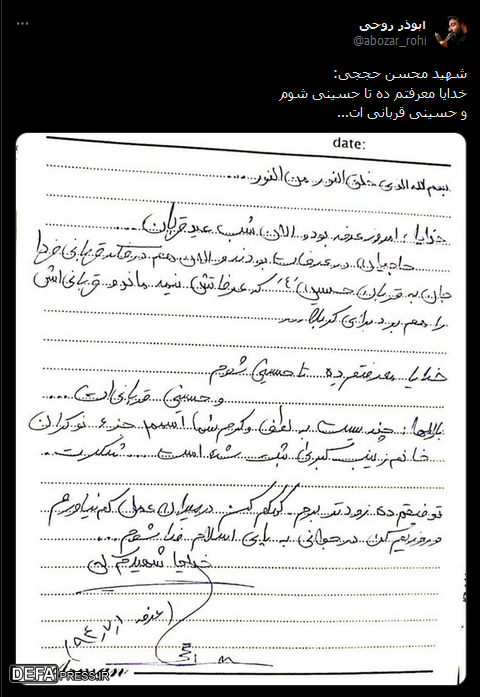 ابوذر روحی
@abozar_rohi
شهید محسن حججی:
خدایا معرفتم ده تا حسینی شوم
و حسینی قربانی ات...
date:
بسم الله الذی خلق النور من النور....
خدایا، امروز عرفه بود و الان شب عید قربان....
حاجیان در عرفات بودند و الان هم در فکر قربانی فردا
جان به قربان حسین (ع) که عرفاتش نیمه ماند و قربانی‌اش
را هم برد برای کربلا....
خدایا معرفتم ده تا حسینی شوم
و حسینی قربانی ات....
بارالها، چند به لطف و کرم شما اسمم جزء نوکران
خانم زینب کبری ثبت شده است
توفیقم ده زودتر بروم کمکم کن در میدان عمل کم نیاورم
و روزیم کن در جوانی به پای اسلام فدا شوم...
خدایا شهیدم کن
عرفه
DEFAPRESS.IR